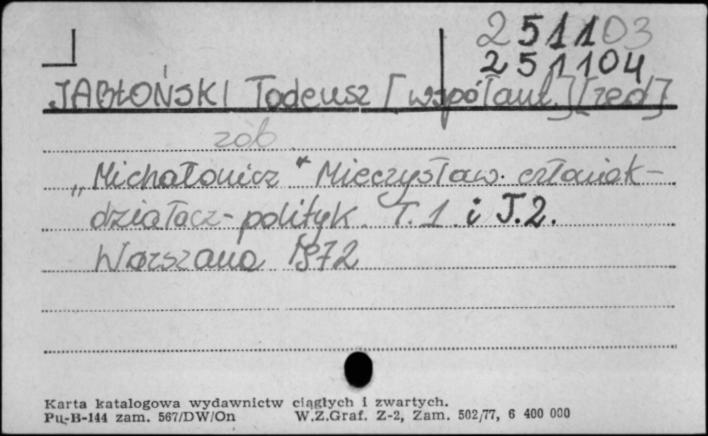 251103
251104
JABŁOŃSKI Tadeusz [współaut.][red]
zob
„Michałowicz" Mieczysław. człowiek-
działacz-polityk. T.1. i T.2.
Warszawa 1972
Karta katalogowa wydawnictw ciągłych i zwartych.
Pu-B-144 zam. 567/DW/On W.Z.Graf. Z-2, Zam. 502/77, 6 400 000